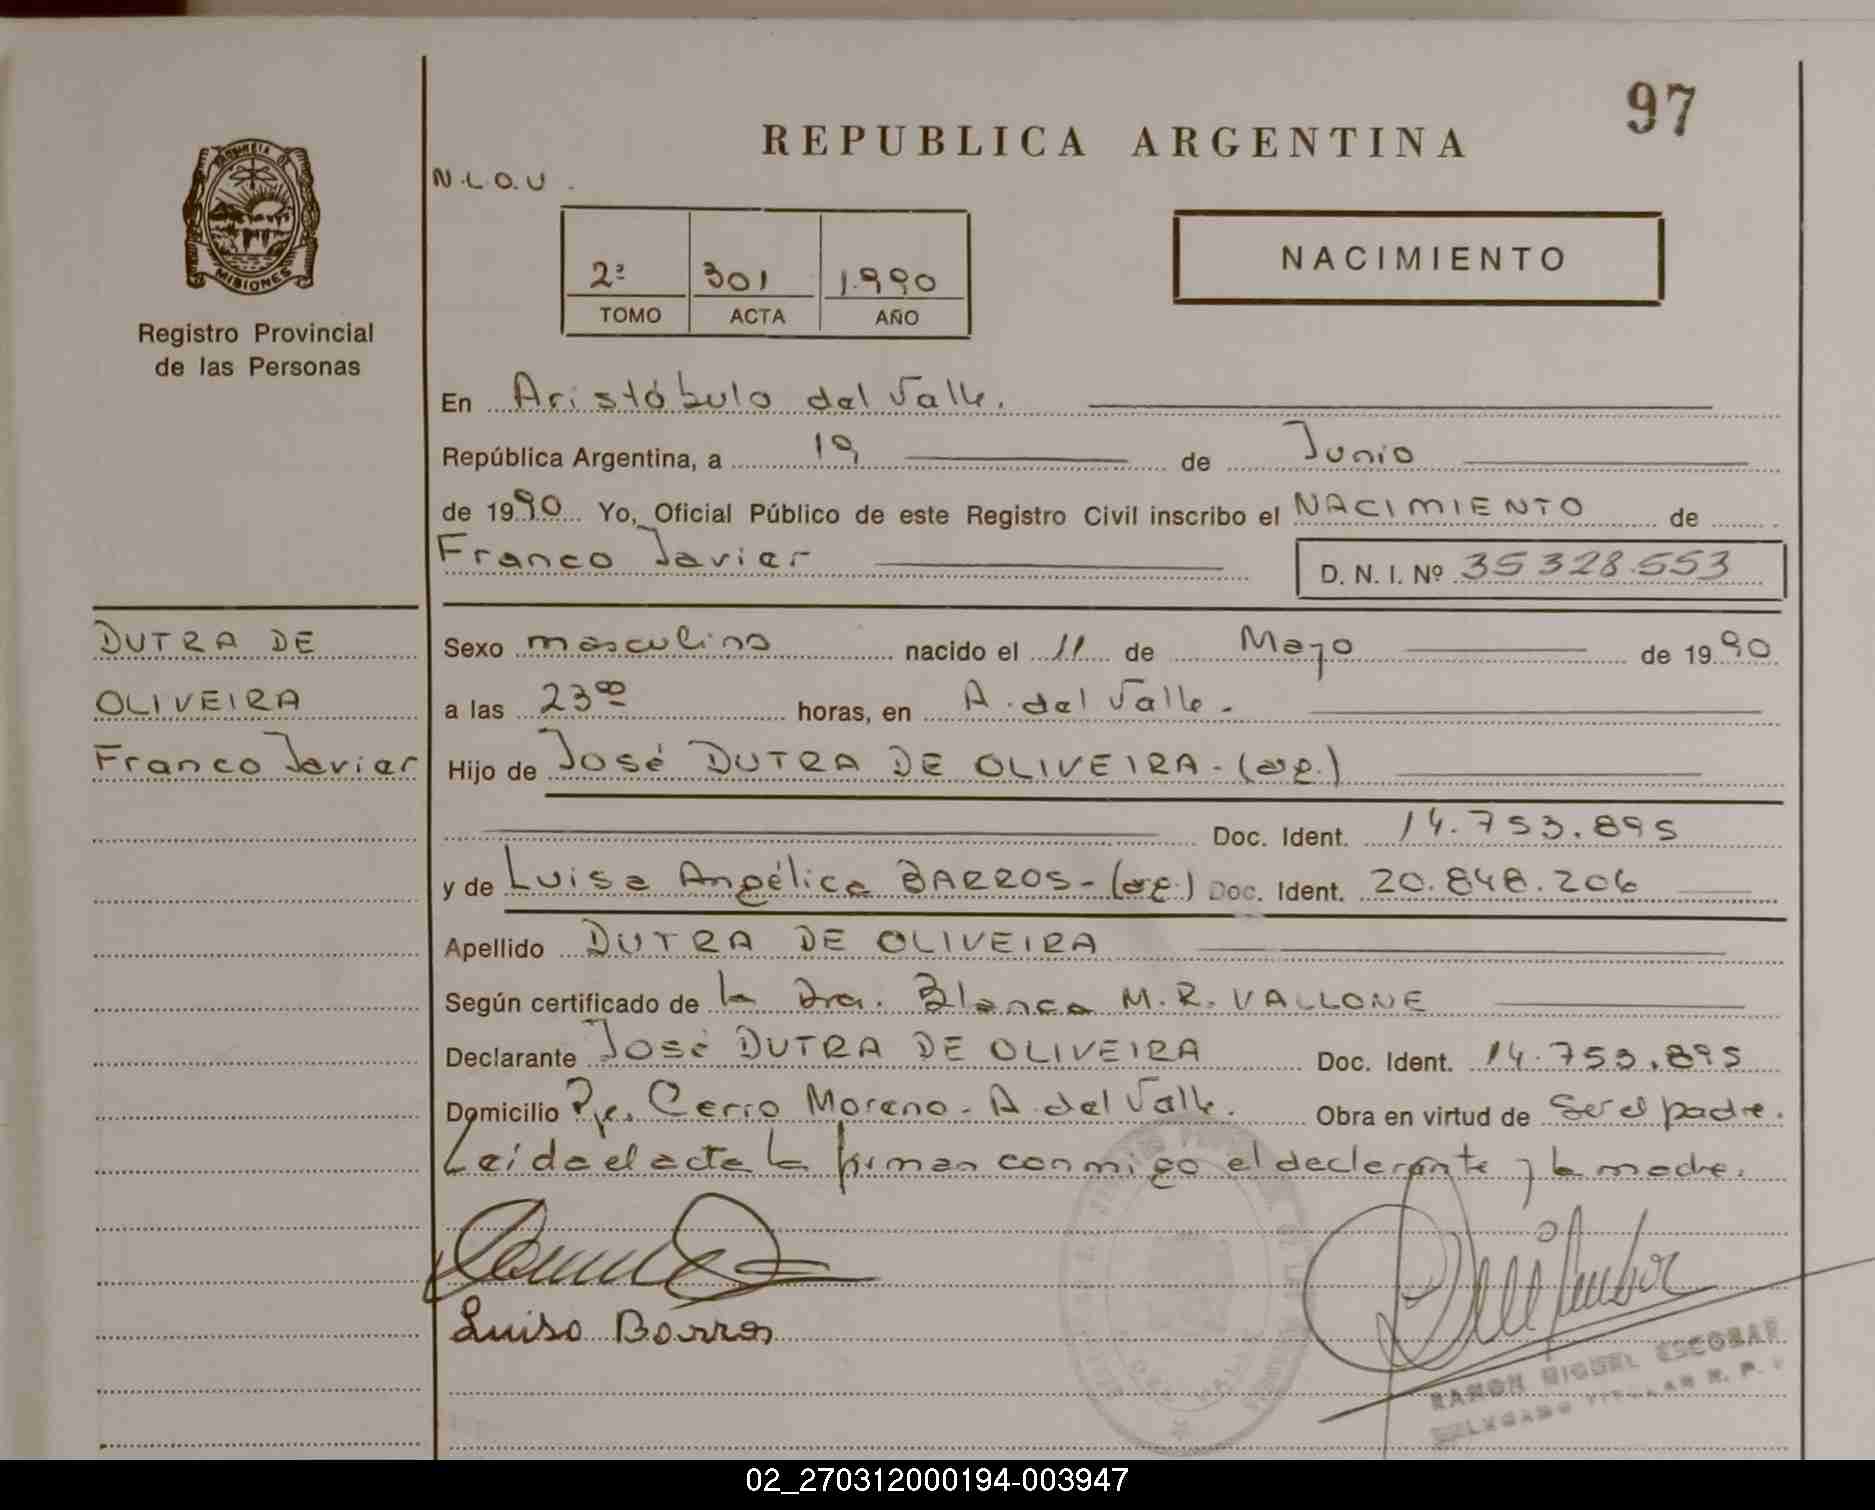 97
REPUBLICA ARGENTINA
N.L.O.U.
PROVINCIA DE
MISIONES
Registro Provincial
de las Personas
2º 301 1.990
TOMO ACTA AÑO
NACIMIENTO
En Aristóbulo del Valle.
República Argentina, a 19 de Junio
de 1990 Yo, Oficial Público de este Registro Civil inscribo el NACIMIENTO de
Franco Javier D. N. I. Nº 35 328.553
DUTRA DE
OLIVEIRA
Franco Javier
Sexo masculino nacido el 11 de Mayo de 1990
a las 23⁰⁰ horas, en A. del Valle.
Hijo de José DUTRA DE OLIVEIRA - (arg.)
Doc. Ident. 14.753.895
y de Luisa Angélica BARROS - (arg.) Doc. Ident. 20.848.206
Apellido DUTRA DE OLIVEIRA
Según certificado de la Dra. Blanca M. R. VALLONE
Declarante José DUTRA DE OLIVEIRA Doc. Ident. 14.753.895
Domicilio Pje. Cerro Moreno - A. del Valle. Obra en virtud de Ser el padre.
Leída el acta la firman conmigo el declarante y la madre.
Luisa Barros
RAMON MIGUEL ESCOBAR
DELEGADO TITULAR R. P.
02_270312000194-003947